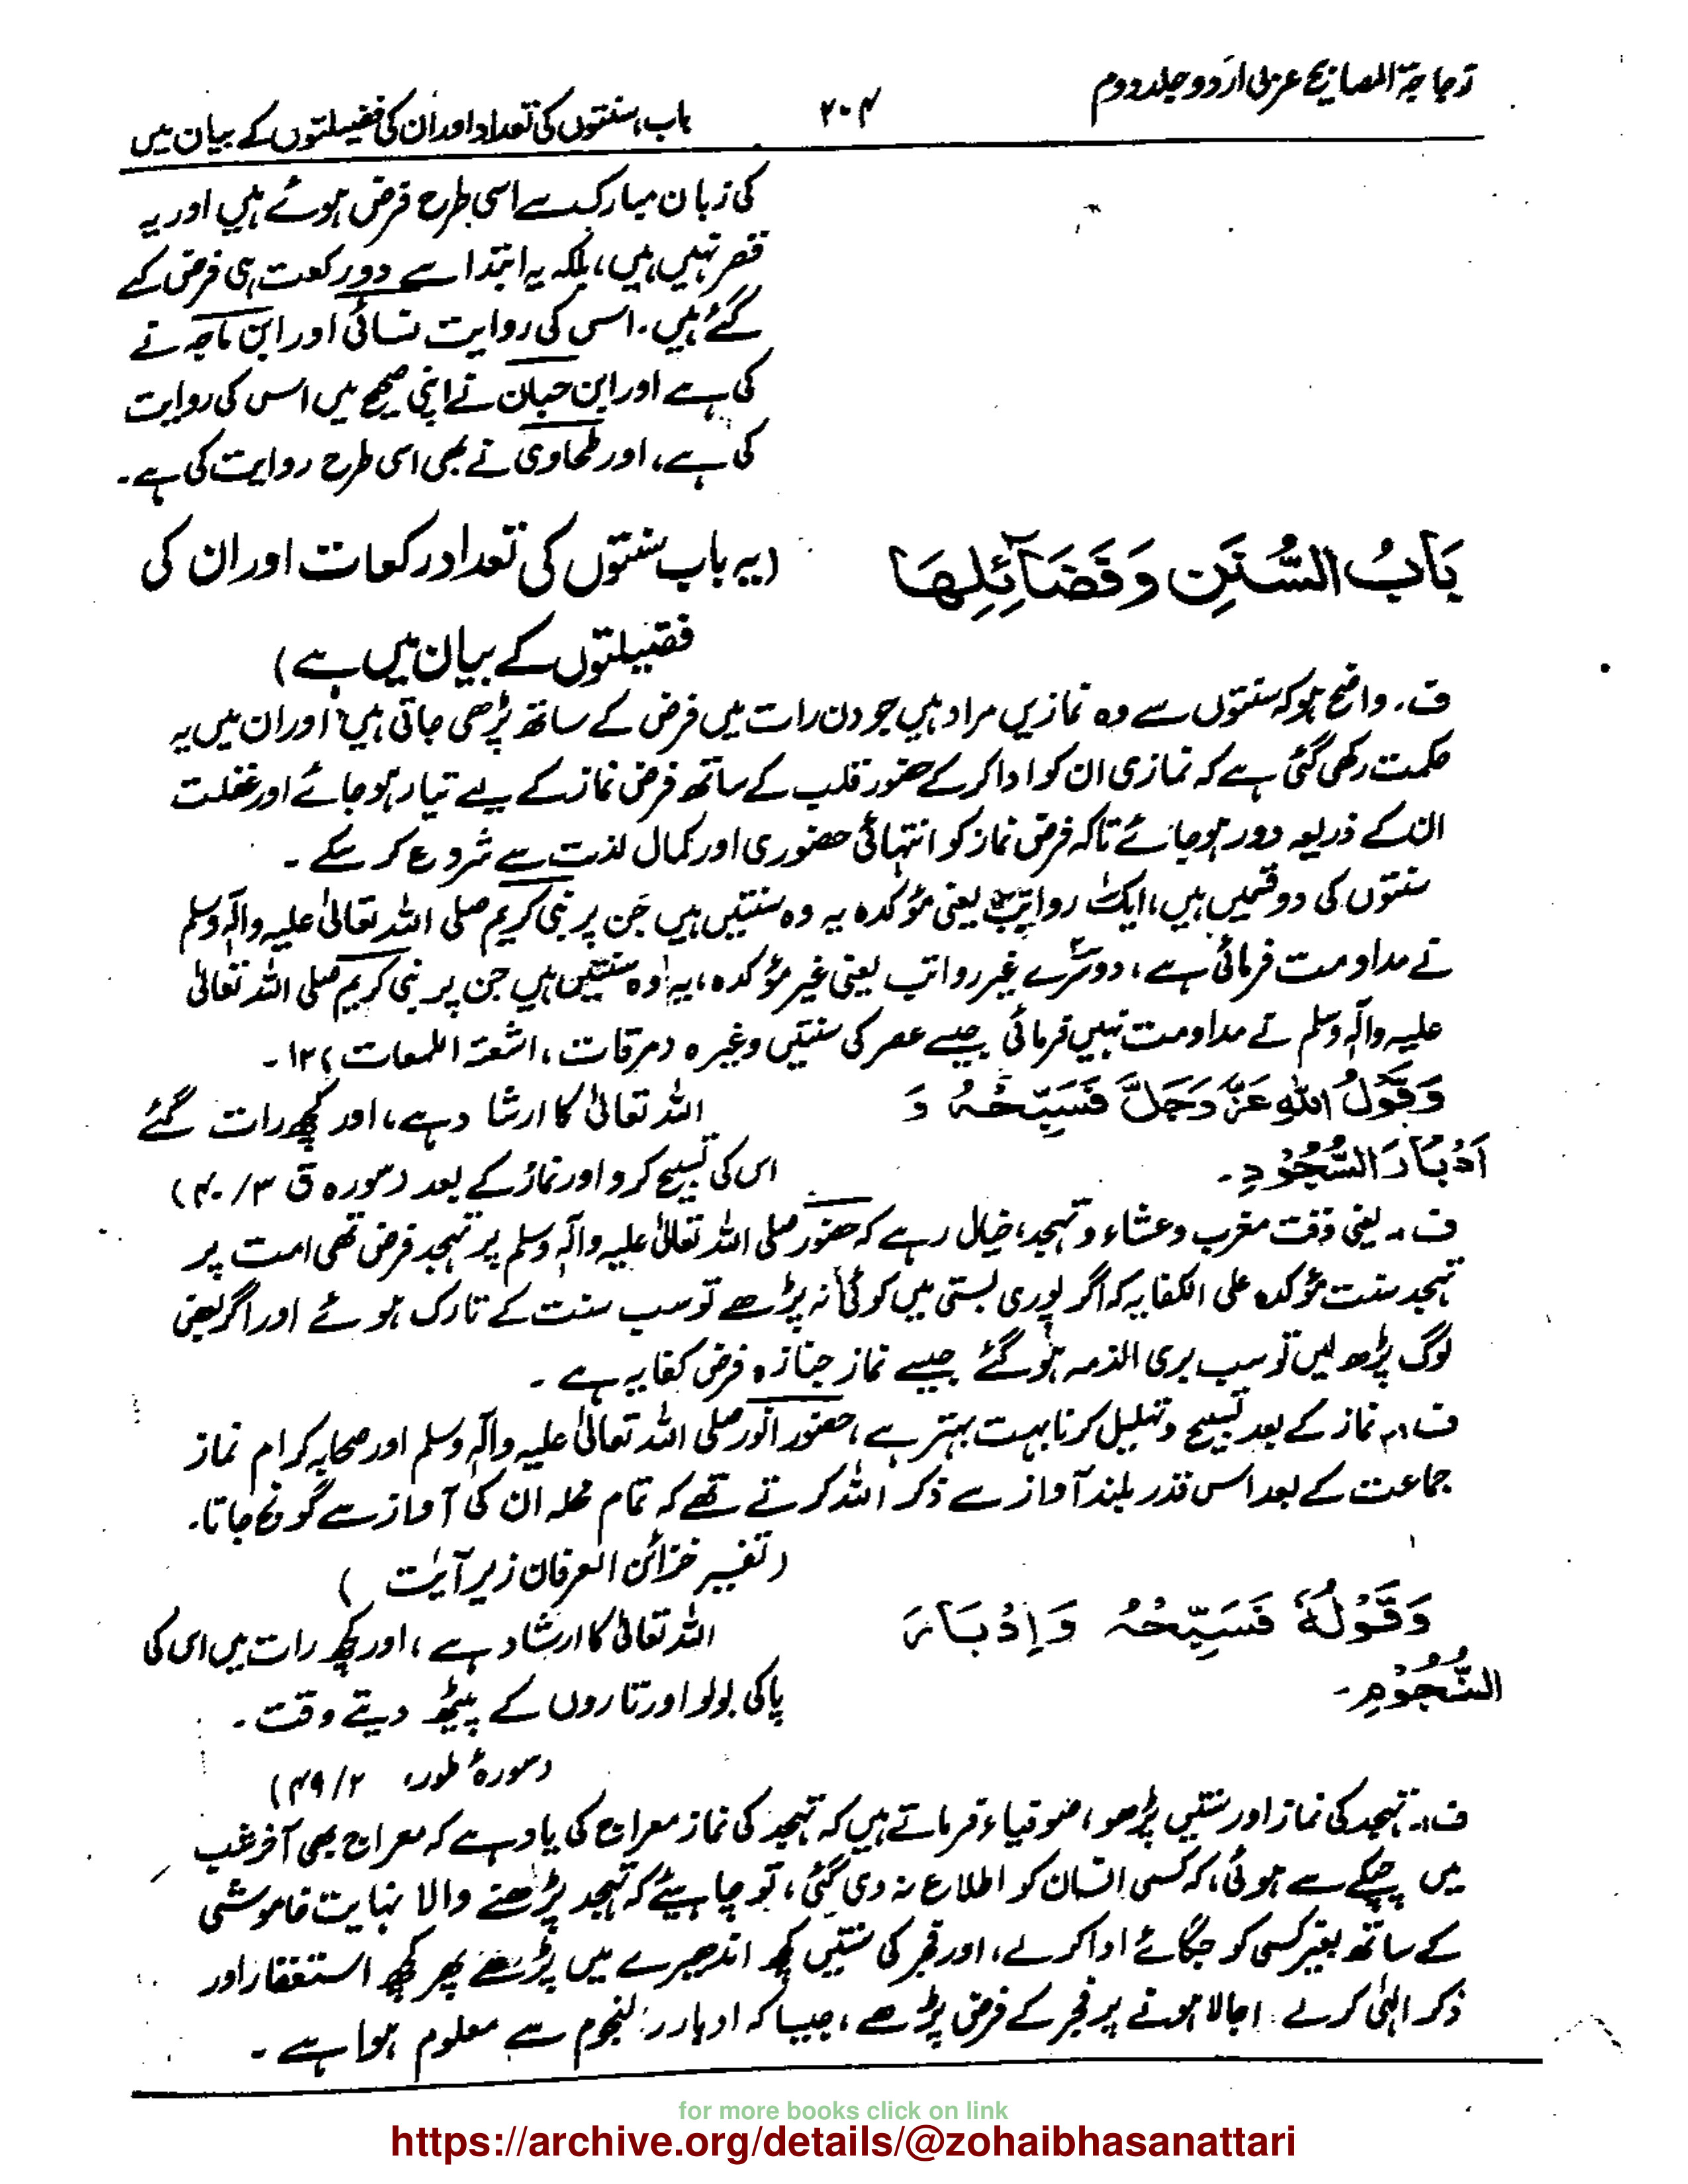 زجاجۃ المصابیح عربی اردو جلد دوم
۲۰۴
باب، سنتوں کی تعداد اور ان کی فضیلتوں کے بیان میں
کی زبان مبارک سے اسی طرح فرض ہوئے ہیں اور یہ
قصر نہیں ہیں، بلکہ یہ ابتدا سے دو رکعت ہی فرض کے
گئے ہیں۔ اس کی روایت نسائی اور ابن ماجہ نے
کی ہے اور ابن حبان نے اپنی صحیح میں اس کی روایت
کی ہے، اور طحاوی نے بھی اسی طرح روایت کی ہے۔
بَابُ السُّنَنِ وَفَضَآئِلِهَا
(یہ باب سنتوں کی تعداد رکعات اور ان کی
فضیلتوں کے بیان میں ہے)
ف۔ واضح ہو کہ سنتوں سے وہ نمازیں مراد ہیں جو دن رات میں فرض کے ساتھ پڑھی جاتی ہیں، اور ان میں یہ
حکمت رکھی گئی ہے کہ نمازی ان کو ادا کر کے حضور قلب کے ساتھ فرض نماز کے لیے تیار ہو جائے اور غفلت
ان کے ذریعہ دور ہو جائے تاکہ فرض نماز کو انتہائی حضوری اور کمال لذت سے شروع کر سکے۔
سنتوں کی دو قسمیں ہیں، ایک رواتب یعنی مؤکدہ یہ وہ سنتیں ہیں جن پر نبی کریم صلی اللہ تعالیٰ علیہ وآلہٖ وسلم
نے مداومت فرمائی ہے، دوسرے غیر رواتب یعنی غیر مؤکدہ، یہ وہ سنتیں ہیں جن پر نبی کریم صلی اللہ تعالیٰ
علیہ وآلہٖ وسلم نے مداومت نہیں فرمائی جیسے عصر کی سنتیں وغیرہ (مرقات، اشعۃ اللمعات) ۱۲۔
وَقَوْلُ اللهِ عَزَّ وَجَلَّ فَسَبِّحْهُ وَ
اَدْبَارَ السُّجُوْدِ۔
اللہ تعالیٰ کا ارشاد ہے، اور کچھ رات گئے
اس کی تسبیح کرو اور نماز کے بعد (سورہ ق ۳/۴۰)
ف۔ یعنی وقت مغرب و عشاء و تہجد، خیال رہے کہ حضور صلی اللہ تعالیٰ علیہ وآلہٖ وسلم پر تہجد فرض تھی امت پر
تہجد سنت مؤکدہ علی الکفایہ کہ اگر پوری بستی میں کوئی نہ پڑھے تو سب سنت کے تارک ہوئے اور اگر بعض
لوگ پڑھ لیں تو سب بری الذمہ ہو گئے جیسے نماز جنازہ فرض کفایہ ہے۔
ف۔ نماز کے بعد تسبیح و تہلیل کرنا بہت بہتر ہے، حضور انور صلی اللہ تعالیٰ علیہ وآلہٖ وسلم اور صحابہ کرام نماز
جماعت کے بعد اس قدر بلند آواز سے ذکر اللہ کرتے تھے کہ تمام محلہ ان کی آواز سے گونج جاتا۔
(تفسیر خزائن العرفان زیر آیت )
وَقَوْلُهٗ فَسَبِّحْهُ وَاِدْبَارَ
النُّجُوْمِ۔
اللہ تعالیٰ کا ارشاد ہے، اور کچھ رات میں اس کی
پاکی بولو اور تاروں کے پیٹھ دیتے وقت۔
(سورۂ طور، ۲/۴۹)
ف۔ تہجد کی نماز اور سنتیں پڑھو، صوفیاء فرماتے ہیں کہ تہجد کی نماز معراج کی یاد ہے کہ معراج بھی آخر شب
میں چپکے سے ہوئی، کہ کسی انسان کو اطلاع نہ دی گئی، تو چاہیئے کہ تہجد پڑھنے والا نہایت خاموشی
کے ساتھ بغیر کسی کو جگائے ادا کرلے، اور فجر کی سنتیں کچھ اندھیرے میں پڑھے پھر کچھ استغفار اور
ذکر الٰہی کرلے۔ اجالا ہونے پر فجر کے فرض پڑھے، جیسا کہ ادبار النجوم سے معلوم ہوا ہے۔
for more books click on link
https://archive.org/details/@zohaibhasanattari